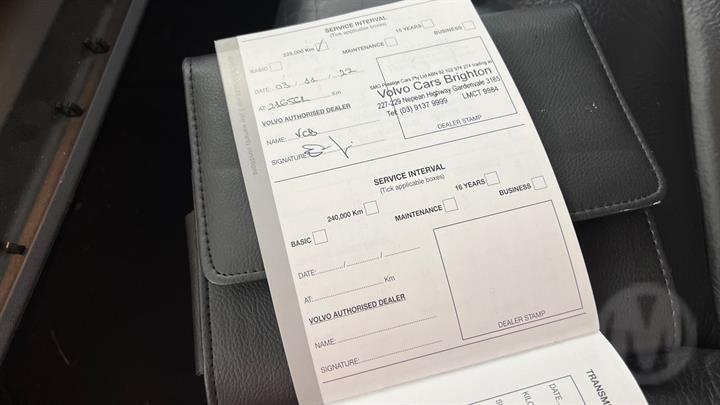 SERVICE INTERVAL
(Tick applicable boxes)
225,000 Km ✓ 15 YEARS
BASIC MAINTENANCE BUSINESS
DATE: 03 / 11 / 22
AT: Km
VOLVO AUTHORISED DEALER
NAME: VCB
SIGNATURE:
SMO Prestige Cars Pty Ltd ABN 92 102 974 274 trading as
Volvo Cars Brighton
227-229 Nepean Highway Gardenvale 3185
Tel: (03) 9137 9999 LMCT 9984
DEALER STAMP
SERVICE INTERVAL
(Tick applicable boxes)
240,000 Km 16 YEARS
BASIC MAINTENANCE BUSINESS
DATE:............/............/............
AT:............ Km
VOLVO AUTHORISED DEALER
NAME:............
SIGNATURE:............
DEALER STAMP
TRANSM
DATE
KILO
M